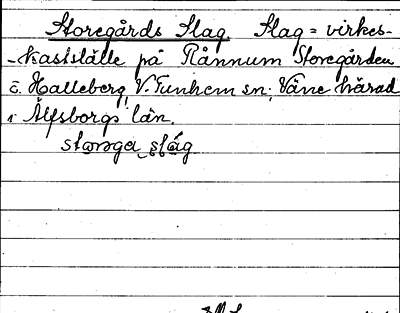 Storegårds Slag. Slag = virkes-
-kastställe på Rånnum Storegården
å Halleberg, V. Tunhem sn; Väne härad
i Älfsborgs län.